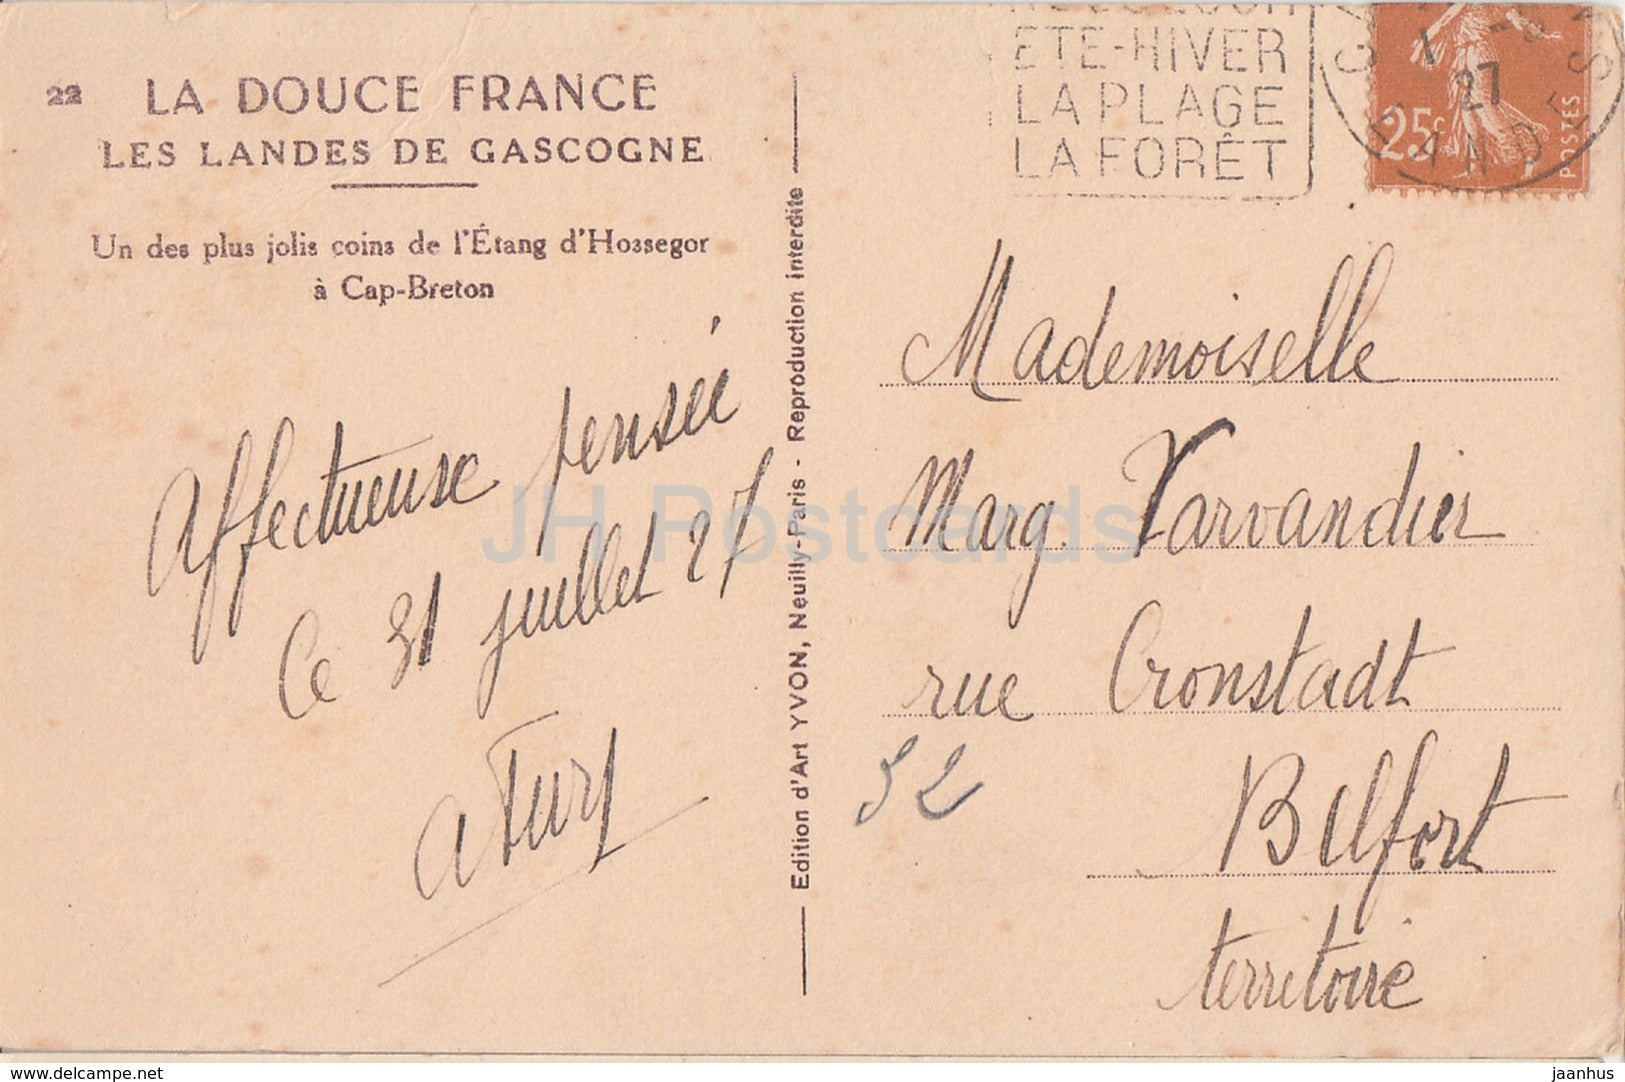 22 LA DOUCE FRANCE
LES LANDES DE GASCOGNE
Un des plus jolis coins de l'Étang d'Hossegor
à Cap-Breton
Affectueuse pensée
Ce 31 juillet 27
Edition d'Art YVON, Neuilly-Paris - Reproduction interdite
ETE-HIVER
LA PLAGE
LA FORÊT
27
25c
POSTES
Mademoiselle
Marg Varvandier
rue Cronstadt
52
Belfort
territoire
JH Postcards
www.delcampe.net
jaanhus